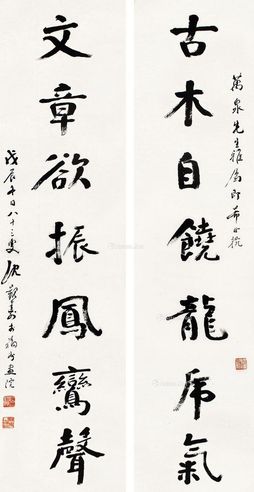 古木自饒龍虎氣
萬泉先生雅屬即希正捥
文章欲振鳳鸞聲
戊辰年日八十三叟沈